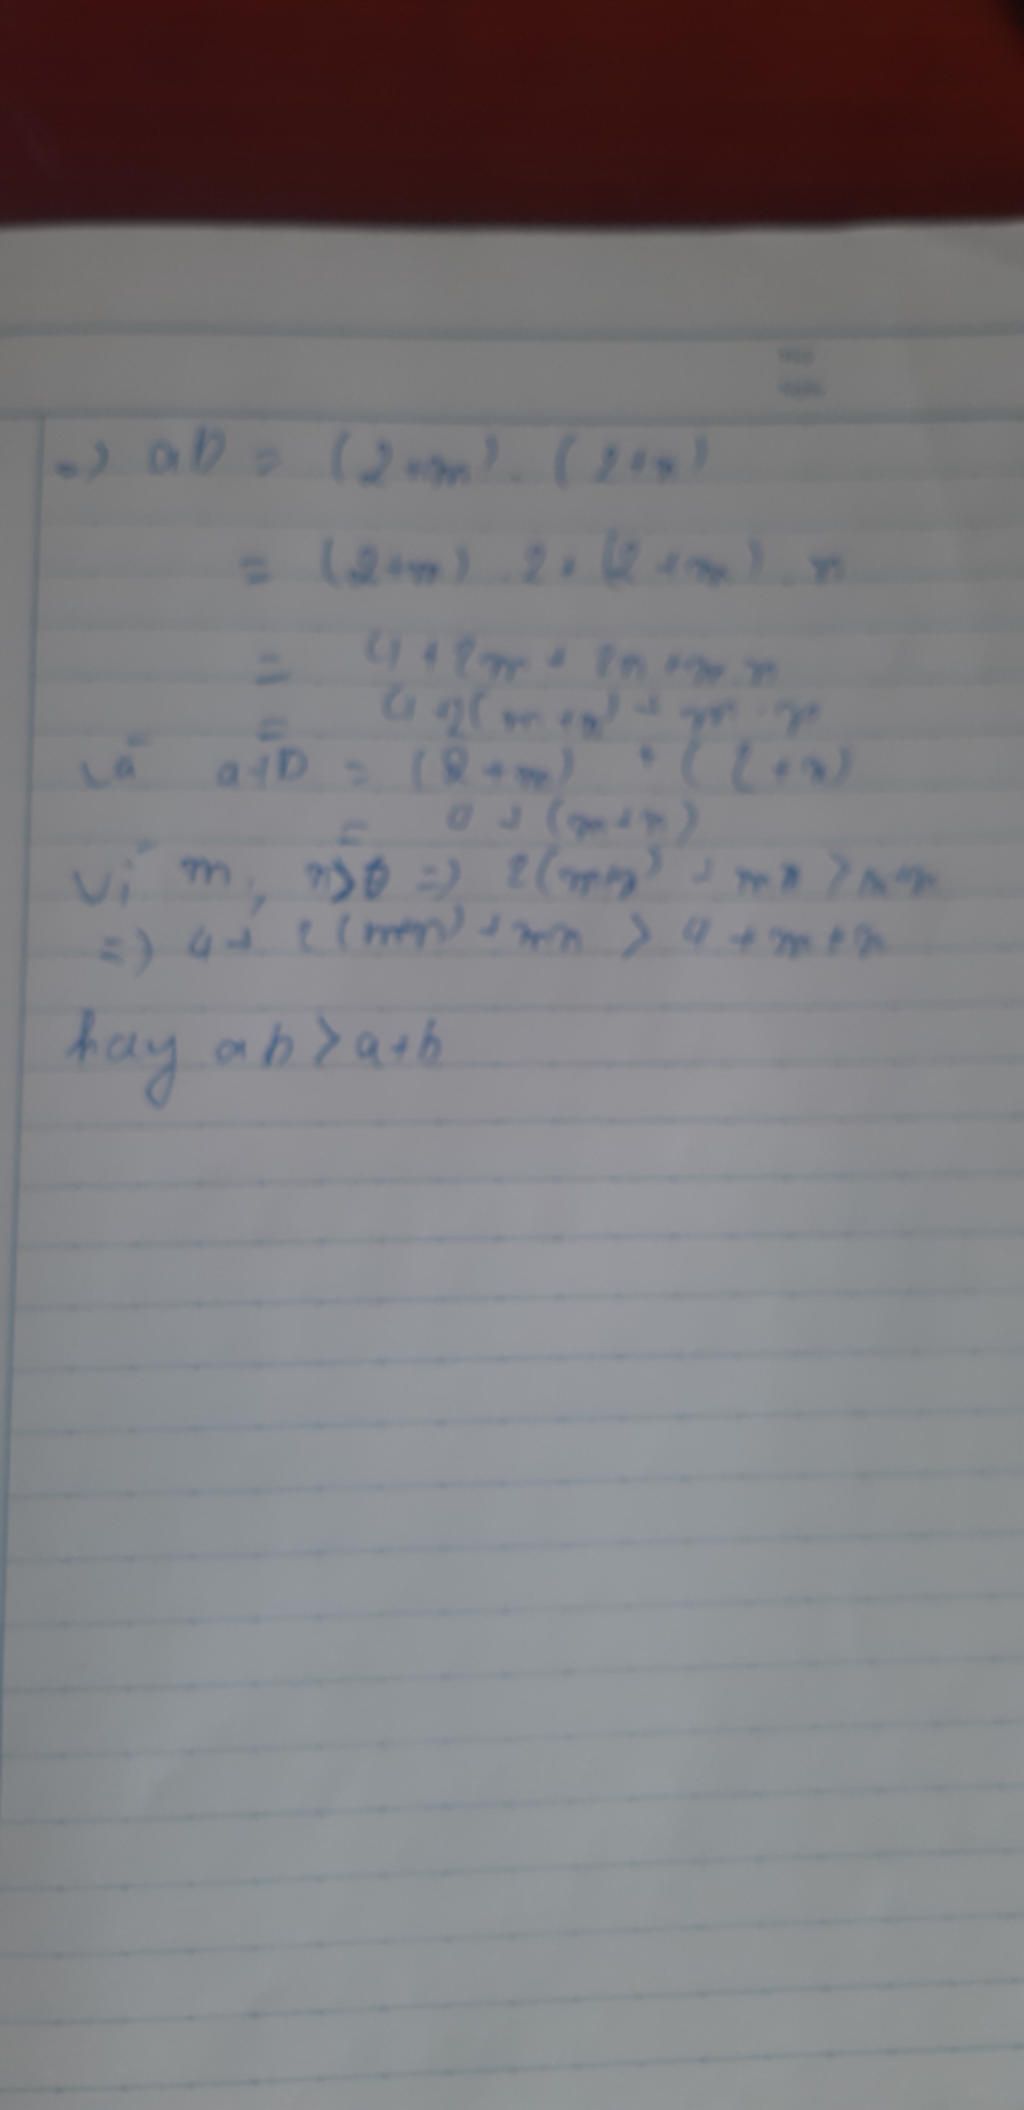 =) ab = (2+m) . (2+n)
= (2+m) 2 + (2+m) . n
= 4 + 2m + 2n + m.n
= 4 + 2(m+n) + m.n
và a+b = (2+m) + (2+n)
= 4 + (m+n)
Vì m, n>0 =) 2(m+n) + mn > m+n
=) 4 + 2(m+n) + mn > 4 + m + n
hay ab > a+b